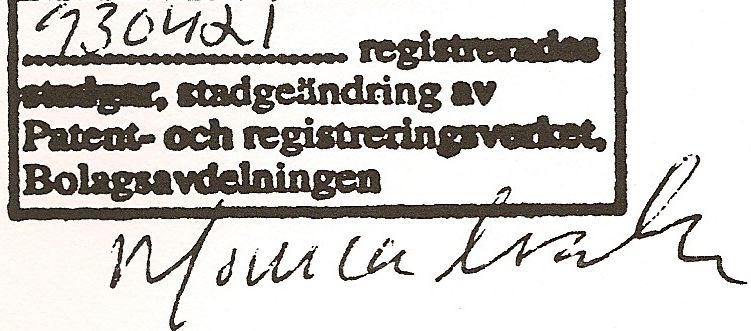 930421 registrerades
stadgar, stadgeändring av
Patent- och registreringsverket,
Bolagsavdelningen
Monica